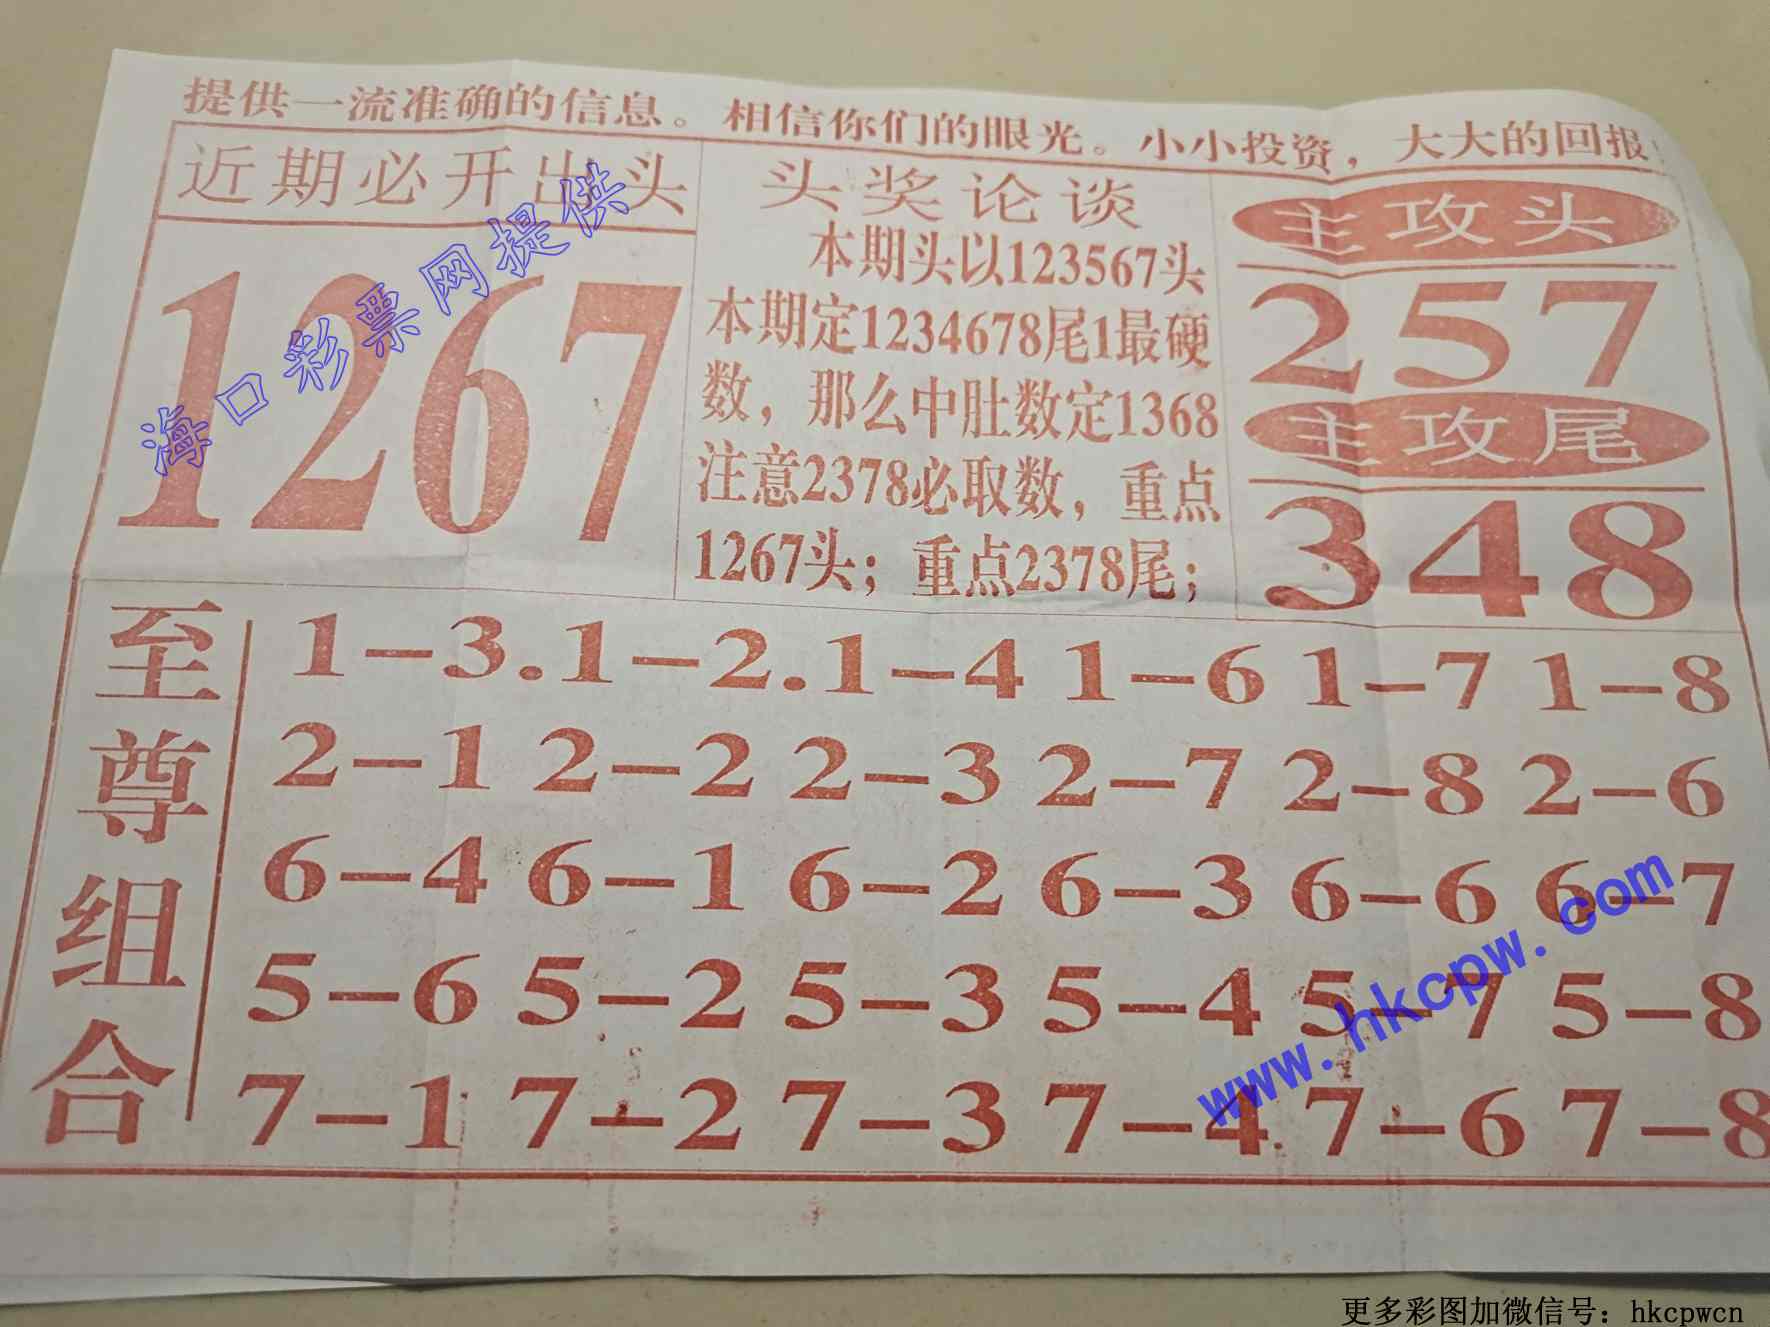 提供一流准确的信息。相信你们的眼光。小小投资，大大的回报
近期必开出头
1267
头奖论谈
本期头以123567头
本期定1234678尾1最硬
数，那么中肚数定1368
注意2378必取数，重点
1267头；重点2378尾；
主攻头
257
主攻尾
348
至尊组合
1-3.1-2.1-4 1-6 1-7 1-8
2-1 2-2 2-3 2-7 2-8 2-6
6-4 6-1 6-2 6-3 6-6 6-7
5-6 5-2 5-3 5-4 5-7 5-8
7-1 7-2 7-3 7-4 7-6 7-8
海口彩票网提供
www.hkcpw.com
更多彩图加微信号：hkcpwcn